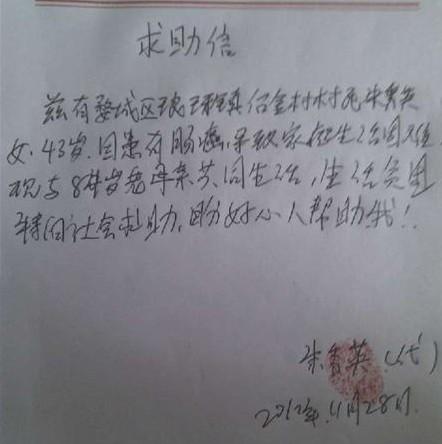 求助信
兹有婺城区琅琊镇金村村民朱香英
女,43岁.因患有肠癌,导致家庭生活困难
现与8旬岁老母亲共同生活,生活贫困
特向社会求助,助好心人帮助我!
朱香英(代)
2012年11月28日.